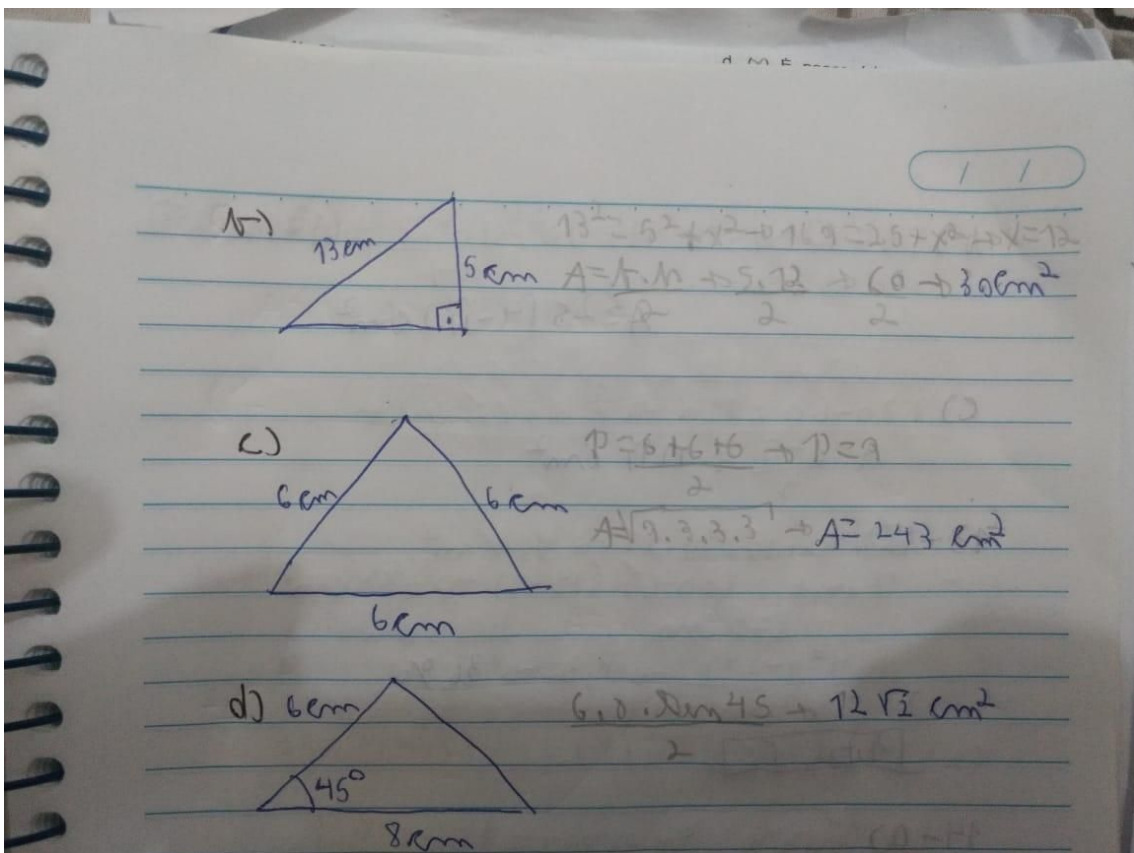 b)
13cm
5cm
13² = 5² + x² → 169 = 25 + x² → x = 12
A = b.h → 5.12 → 60 → 30cm²
2 2 2
c)
6cm
6cm
6cm
P = 6+6+6 → P = 9
2
A = √9.3.3.3 → A = 243 cm²
d) 6cm
45°
8cm
6.8.sen 45 → 12√2 cm²
2